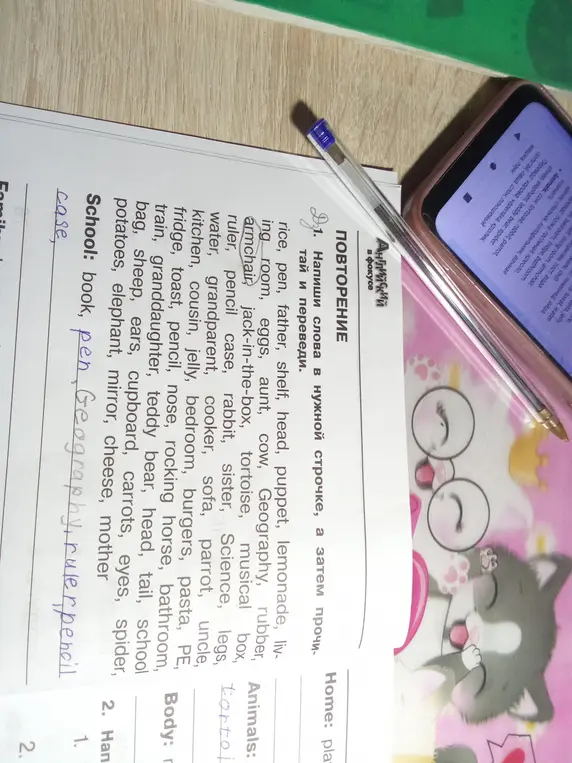 Английский
в фокусе
ПОВТОРЕНИЕ
1. Напиши слова в нужной строчке, а затем прочи-
тай и переведи.
rice, pen, father, shelf, head, puppet, lemonade, liv-
ing room, eggs, aunt, cow, Geography, rubber,
armchair, jack-in-the-box, tortoise, musical box,
ruler, pencil case, rabbit, sister, Science, legs,
water, grandparent, cooker, sofa, parrot, uncle,
kitchen, cousin, jelly, bedroom, burgers, pasta, PE,
fridge, toast, pencil, nose, rocking horse, bathroom,
train, granddaughter, teddy bear, head, tail, school
bag, sheep, ears, cupboard, carrots, eyes, spider,
potatoes, elephant, mirror, cheese, mother
School: book, pen, Geography, ruler, pencil
case,
Home:
Animals:
Body:
2. Han
1.
2.